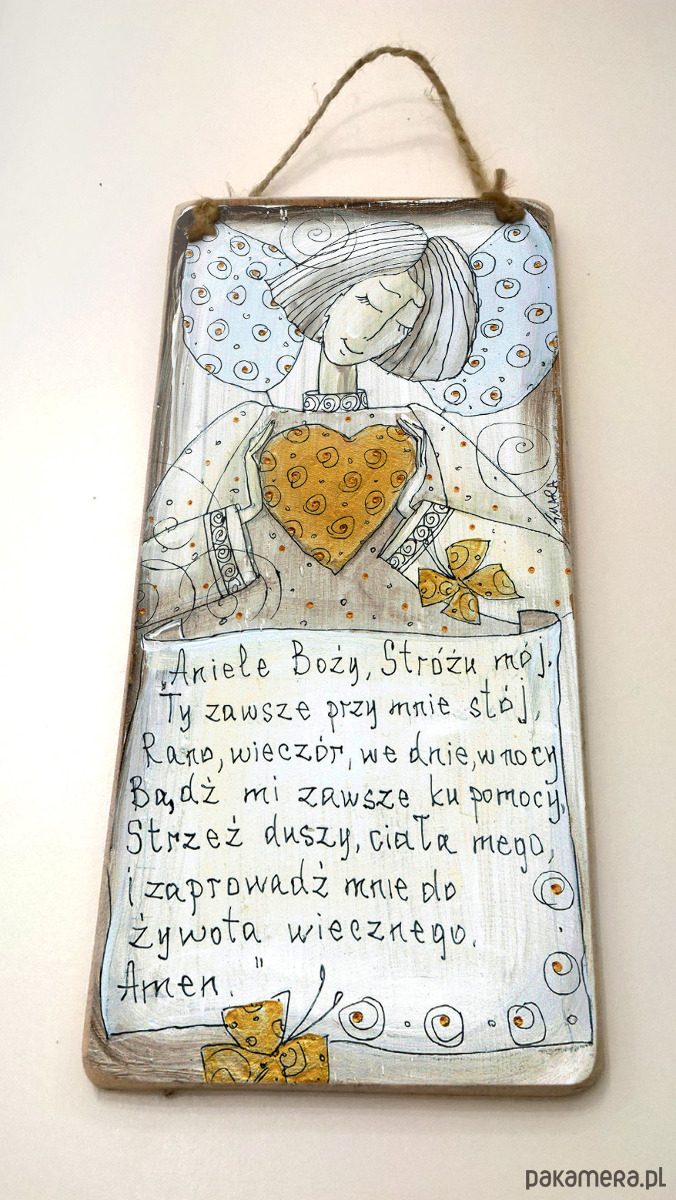 ZMARA
„Aniele Boży, Stróżu mój.
Ty zawsze przy mnie stój,
Rano, wieczór, we dnie, w nocy
Bądź mi zawsze ku pomocy,
Strzeż duszy, ciała mego,
i zaprowadź mnie do
żywota wiecznego.
Amen."
pakamera.pl